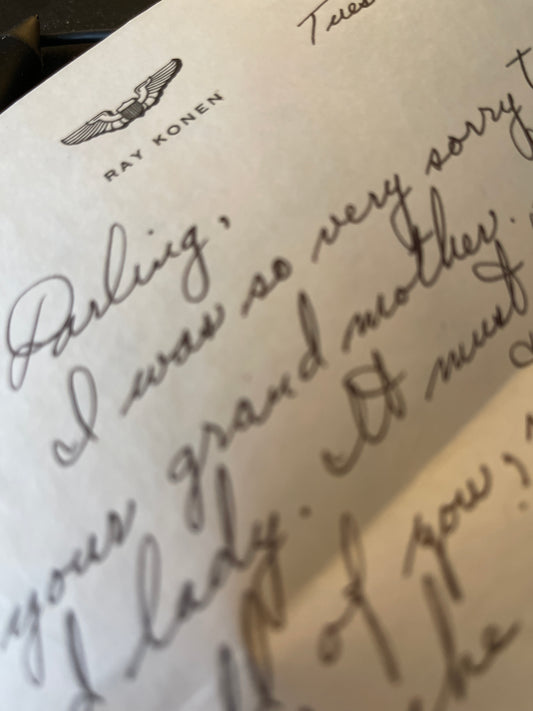 Tues
RAY KONEN
Darling,
I was so very sorry t
your grand mother.
d lady. It must
ll of you,
he